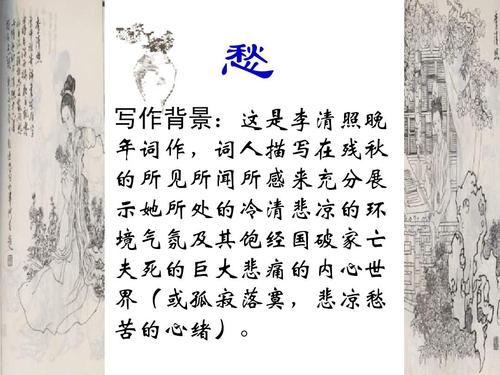 愁
写作背景：这是李清照晚
年词作，词人描写在残秋
的所见所闻所感来充分展
示她所处的冷清悲凉的环
境气氛及其饱经国破家亡
夫死的巨大悲痛的内心世
界（或孤寂落寞，悲凉愁
苦的心绪）。